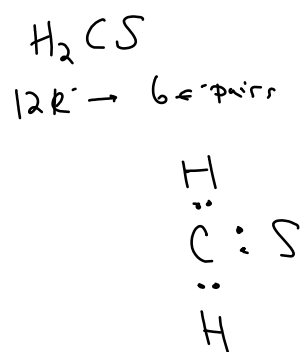 H₂CS
12e⁻ → 6 e⁻ pairs
H
··
C : S
··
H